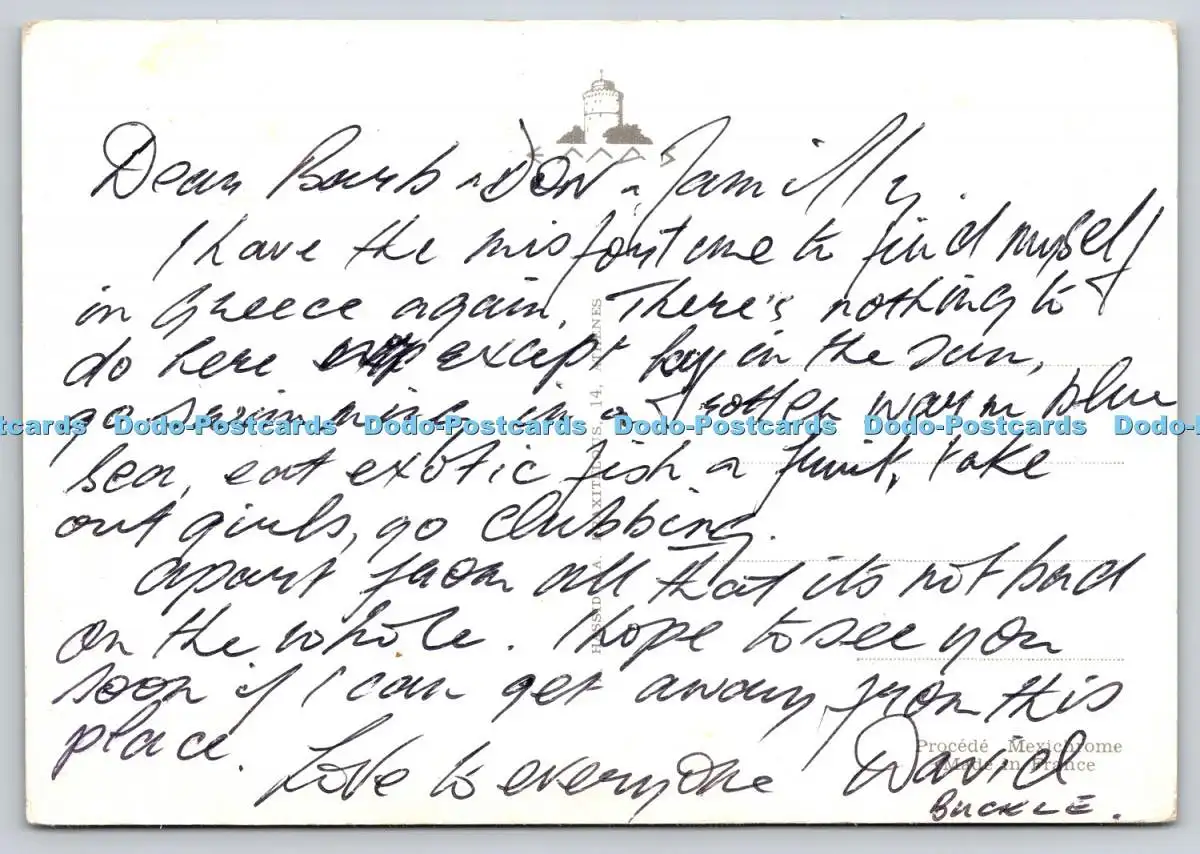 Dear Barb & Don & family.
I have the misfortune to find myself
in Greece again. There's nothing to
do here except lay in the sun,
go swimming in a rotten warm blue
sea, eat exotic fish & fruit, take
out girls, go clubbing.
Apart from all that it's not bad
on the whole. I hope to see you
soon if I can get away from this
place.
Love to everyone David
BUCKLE.
HASSID 14, ATHENES
Procédé Mexichrome
Made in France
Dodo-Postcards Dodo-Postcards Dodo-Postcards Dodo-Postcards